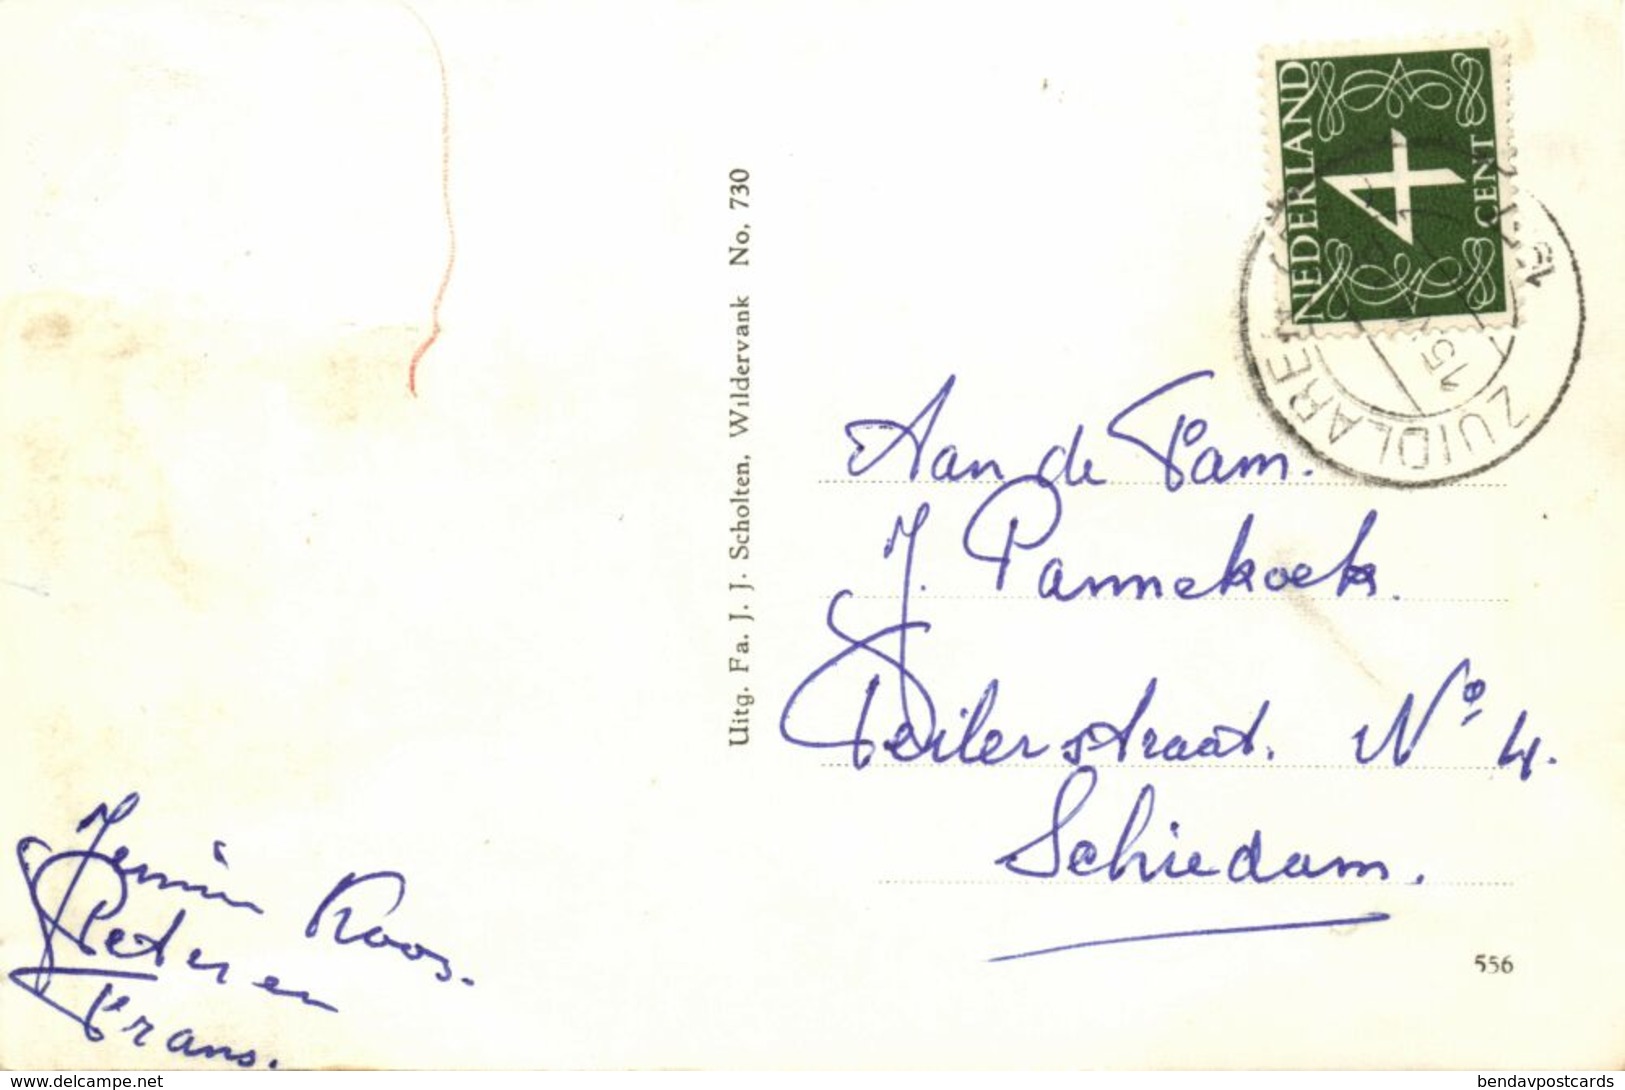 NEDERLAND
4
CENT
ZUIDLARE
15
Uitg. Fa. J. J. Scholten, Wildervank No. 730
Aan de Fam.
J. Pannekoek.
Peilerstraat. No 4.
Schiedam.
Roos.
Peter en
Frans.
556
www.delcampe.net
bendavpostcards